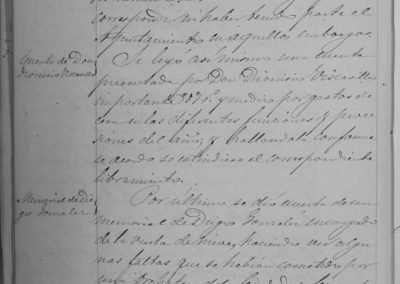 corresponder ni haber tenido parte el
Ayuntamiento en aquellos embargos.
Cuenta de Don
Dionisio
Se leyó asi mismo una cuenta
presentada por Don Dionisio
importante 307 r.s y medio por gastos de
cera en las diferentes funciones y proce
siones del año; y hallandola conforme
se acordo se estendiese el correspondiente
libramiento.
Memorial de Die
go Gonzalez
Por último se dio cuenta de un
memorial de Diego Gonzalez encargado
de la venta de nieve, haciendo ver algu
nas faltas que se habian cometido por